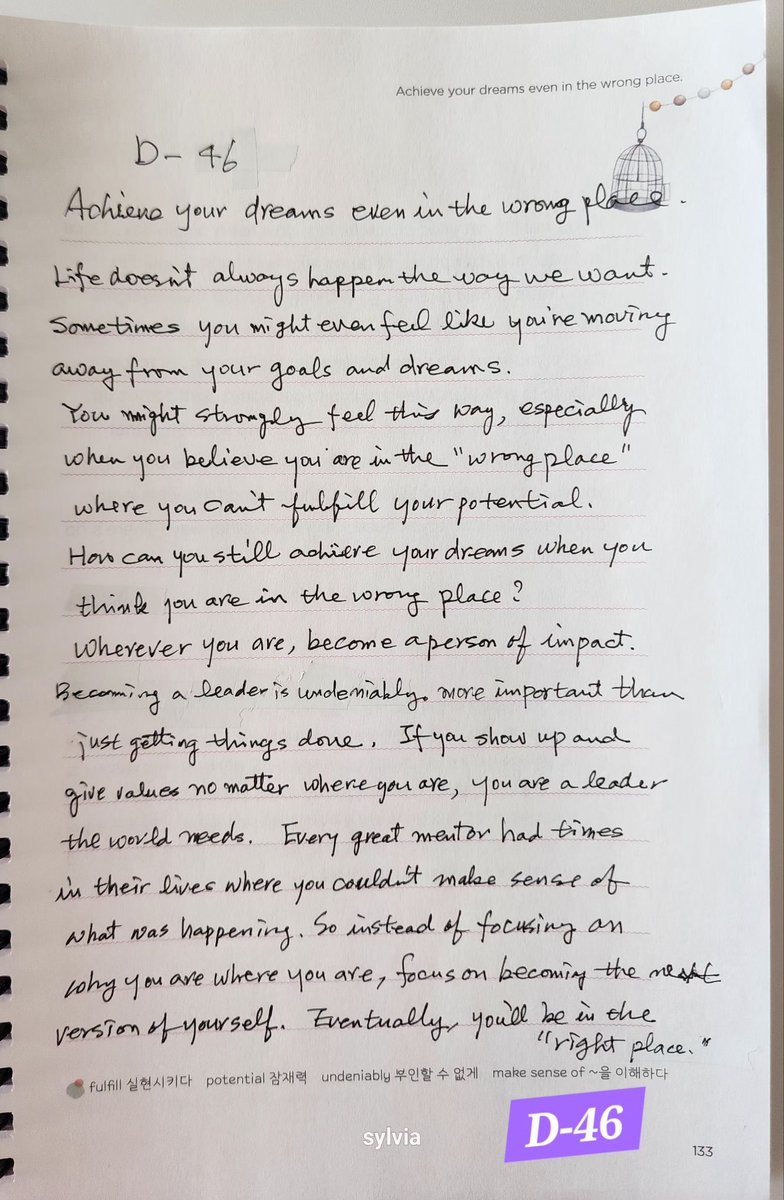 Achieve your dreams even in the wrong place.
D-46
Achieve your dreams even in the wrong place.
Life doesn't always happen the way we want.
Sometimes you might even feel like you're moving
away from your goals and dreams.
You might strongly feel this way, especially
when you believe you are in the "wrong place"
where you can't fulfill your potential.
How can you still achieve your dreams when you
think you are in the wrong place?
Wherever you are, become a person of impact.
Becoming a leader is undeniably more important than
just getting things done. If you show up and
give values no matter where you are, you are a leader
the world needs. Every great mentor had times
in their lives where you couldn't make sense of
what was happening. So instead of focusing on
why you are where you are, focus on becoming the
version of yourself. Eventually, you'll be in the
"right place."
fulfill 실현시키다 potential 잠재력 undeniably 부인할 수 없게 make sense of ~을 이해하다
sylvia
D-46
133